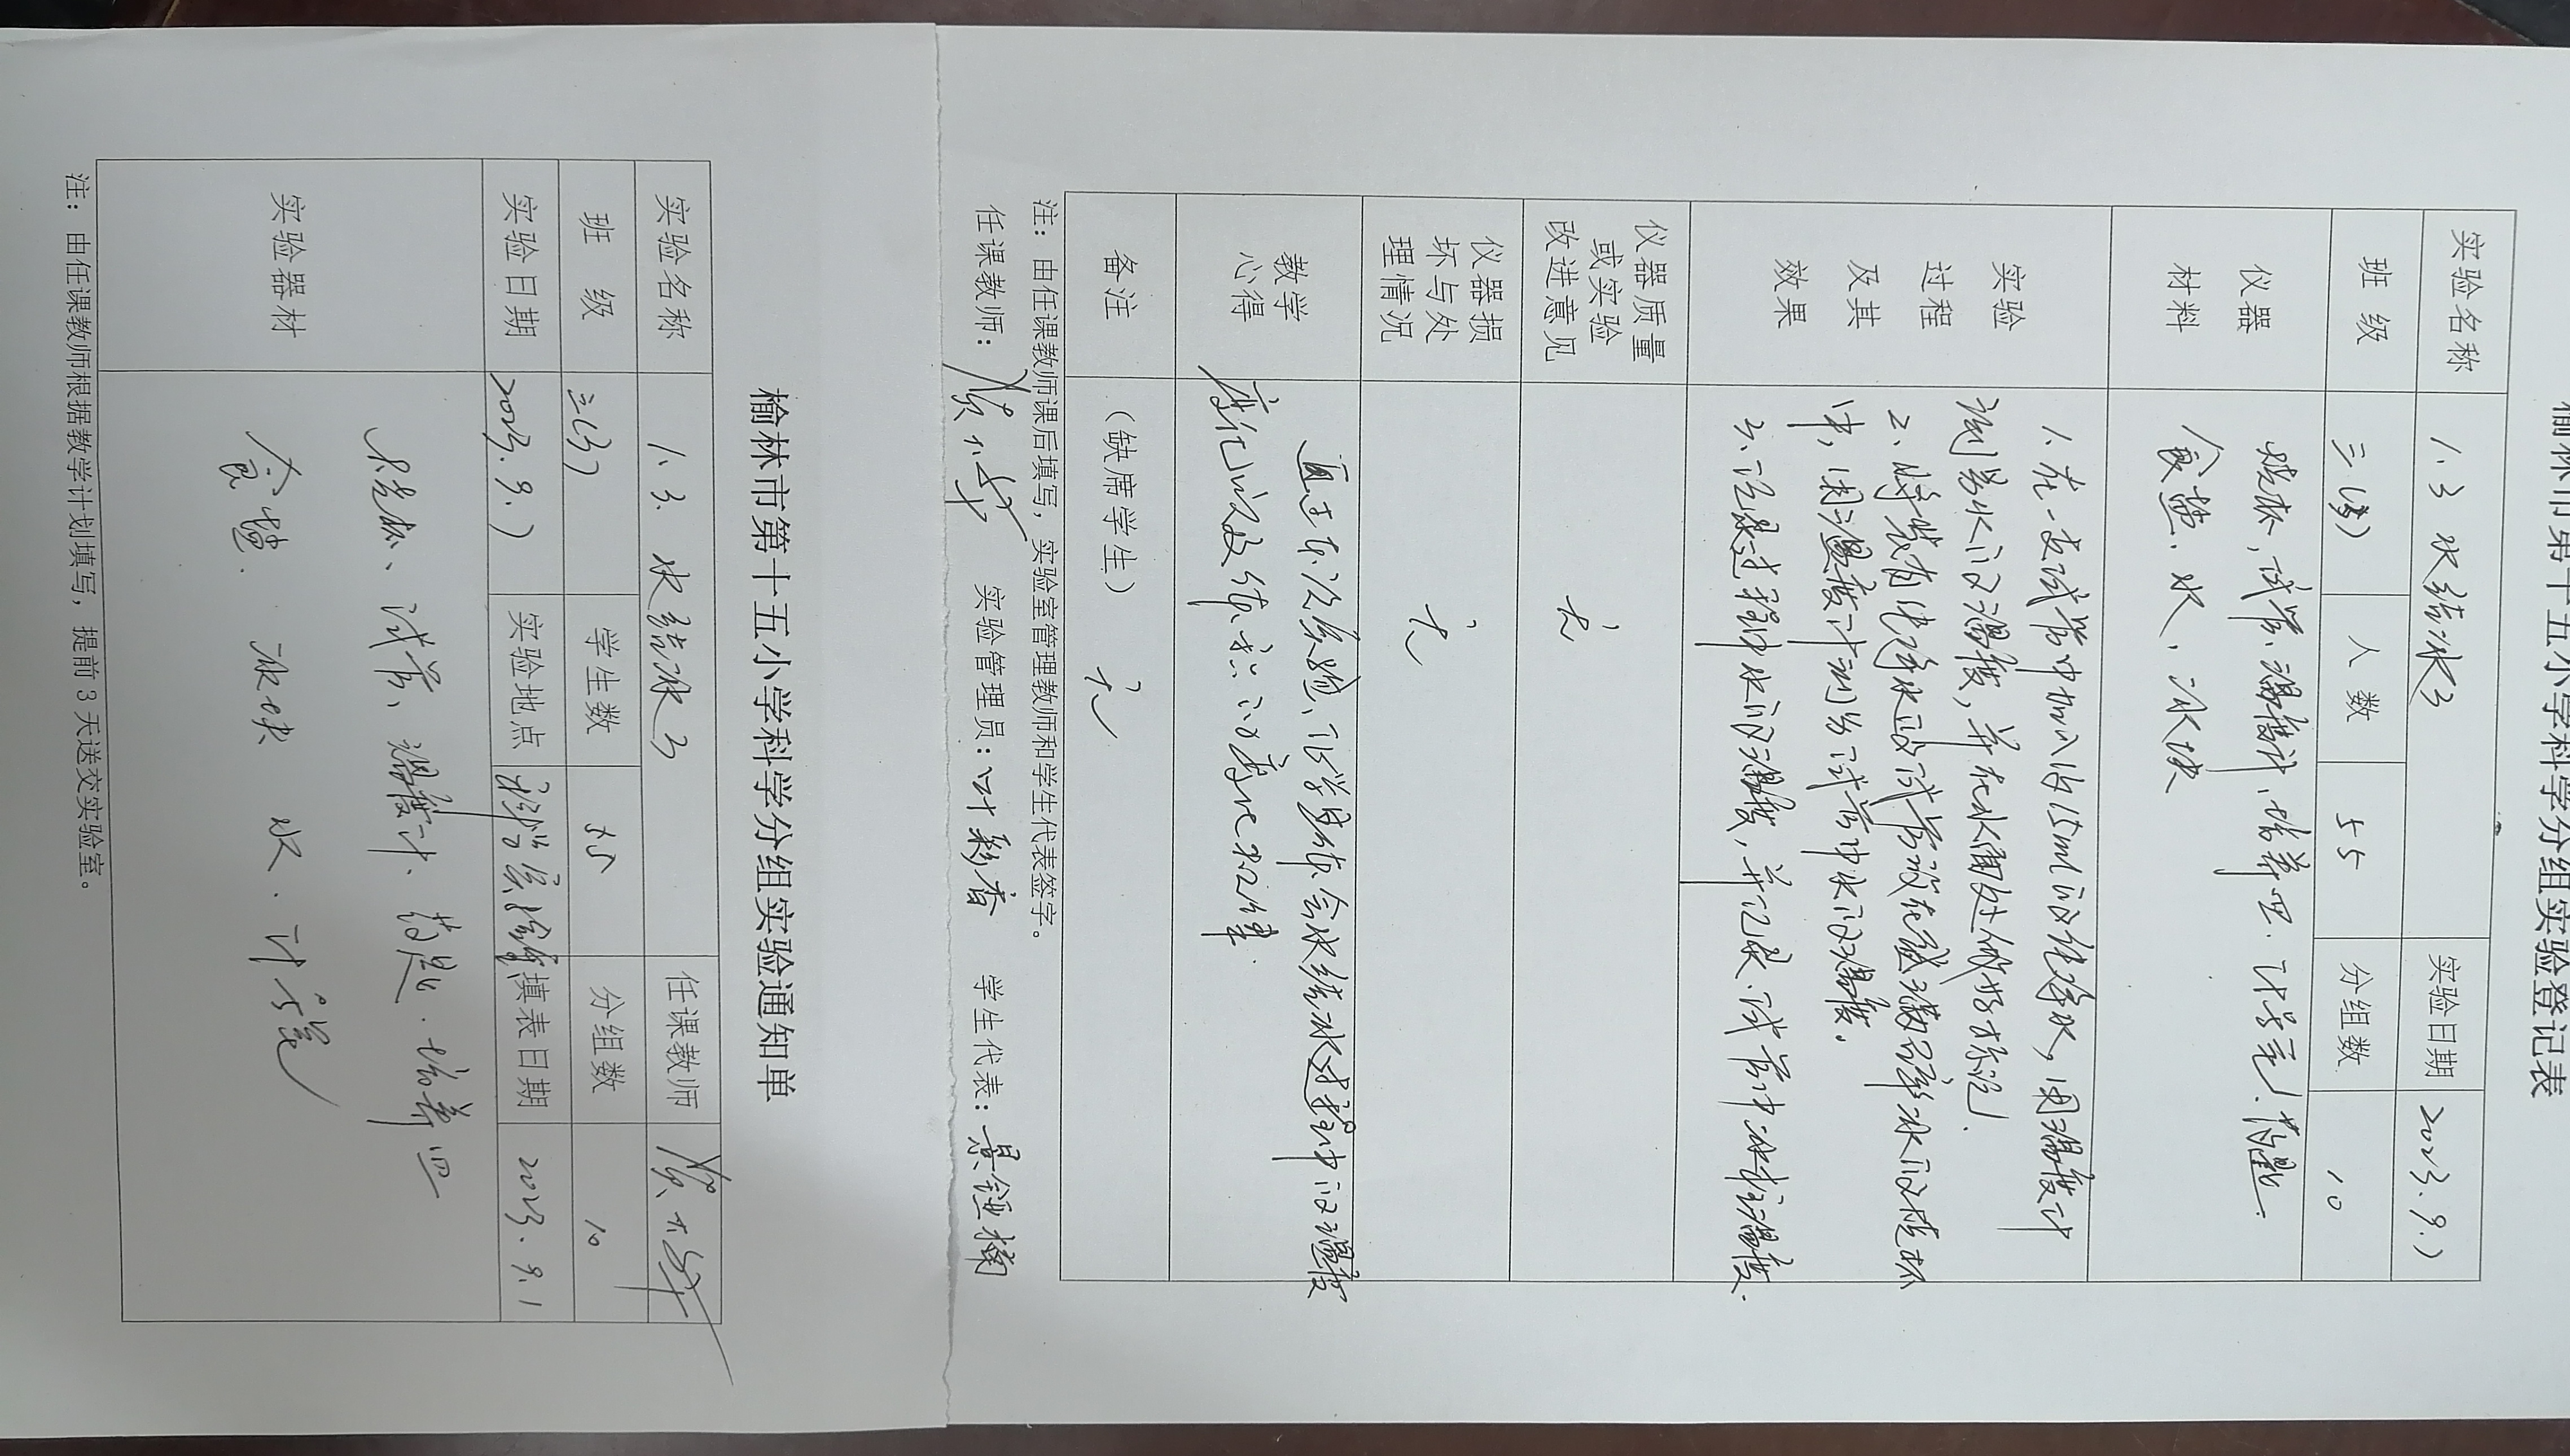 榆林市第十五小学科学分组实验登记表
实验名称 1.3 水结冰了 实验日期 2023.9.
班 级 三(3) 人 数 55 分组数 10
仪器 烧杯、试管、温度计、培养皿、计时器、药匙.
材料 食盐、水、冰块
实验 1、在一支试管中加入约15ml的纯净水，用温度计
过程 测量水的温度，并在水面处做好标记.
及其 2、将装有纯净水的试管放在盛满碎冰的烧杯
效果 中，用温度计测量试管中水的温度。
3、记录过程中水的温度，并记录试管中水位温度.
仪器质量
或实验 无
改进意见
仪器损
坏与处 无
理情况
教学 通过本次实验，让学生体会水结冰过程中的温度
心得 变化以及体积的变化规律.
备注 （缺席学生） 无
注：由任课教师课后填写，实验室管理教师和学生代表签字。
任课教师： 实验管理员：叶彩香 学生代表：
榆林市第十五小学科学分组实验通知单
实验名称 1.3. 水结冰了 任课教师
班 级 三(3) 学生数 55 分组数 10
实验日期 2023.9. 实验地点 科学实验室 填表日期 2023.9.1
实验器材 烧杯、试管、温度计、药匙.培养皿
食盐. 冰块 水.计时器
注：由任课教师根据教学计划填写，提前 3 天送交实验室。